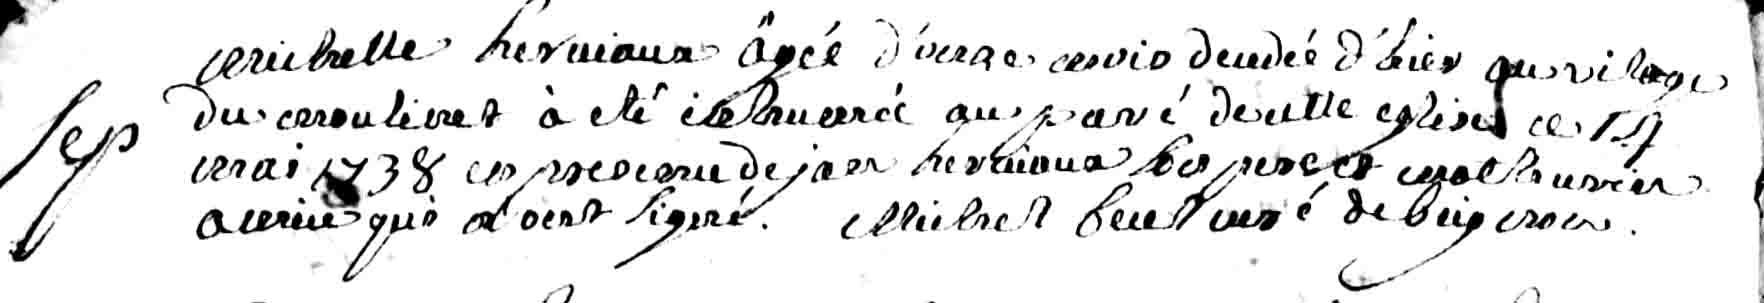 michelle herviaux âgée d'un an morte d'hier au vilage
Sep du moulinet à été inhumée au pavé de cette eglise ce 14
mai 1738 en presence de jan herviaux son pere et mathurin
qui ne sont signé. Michel curé de